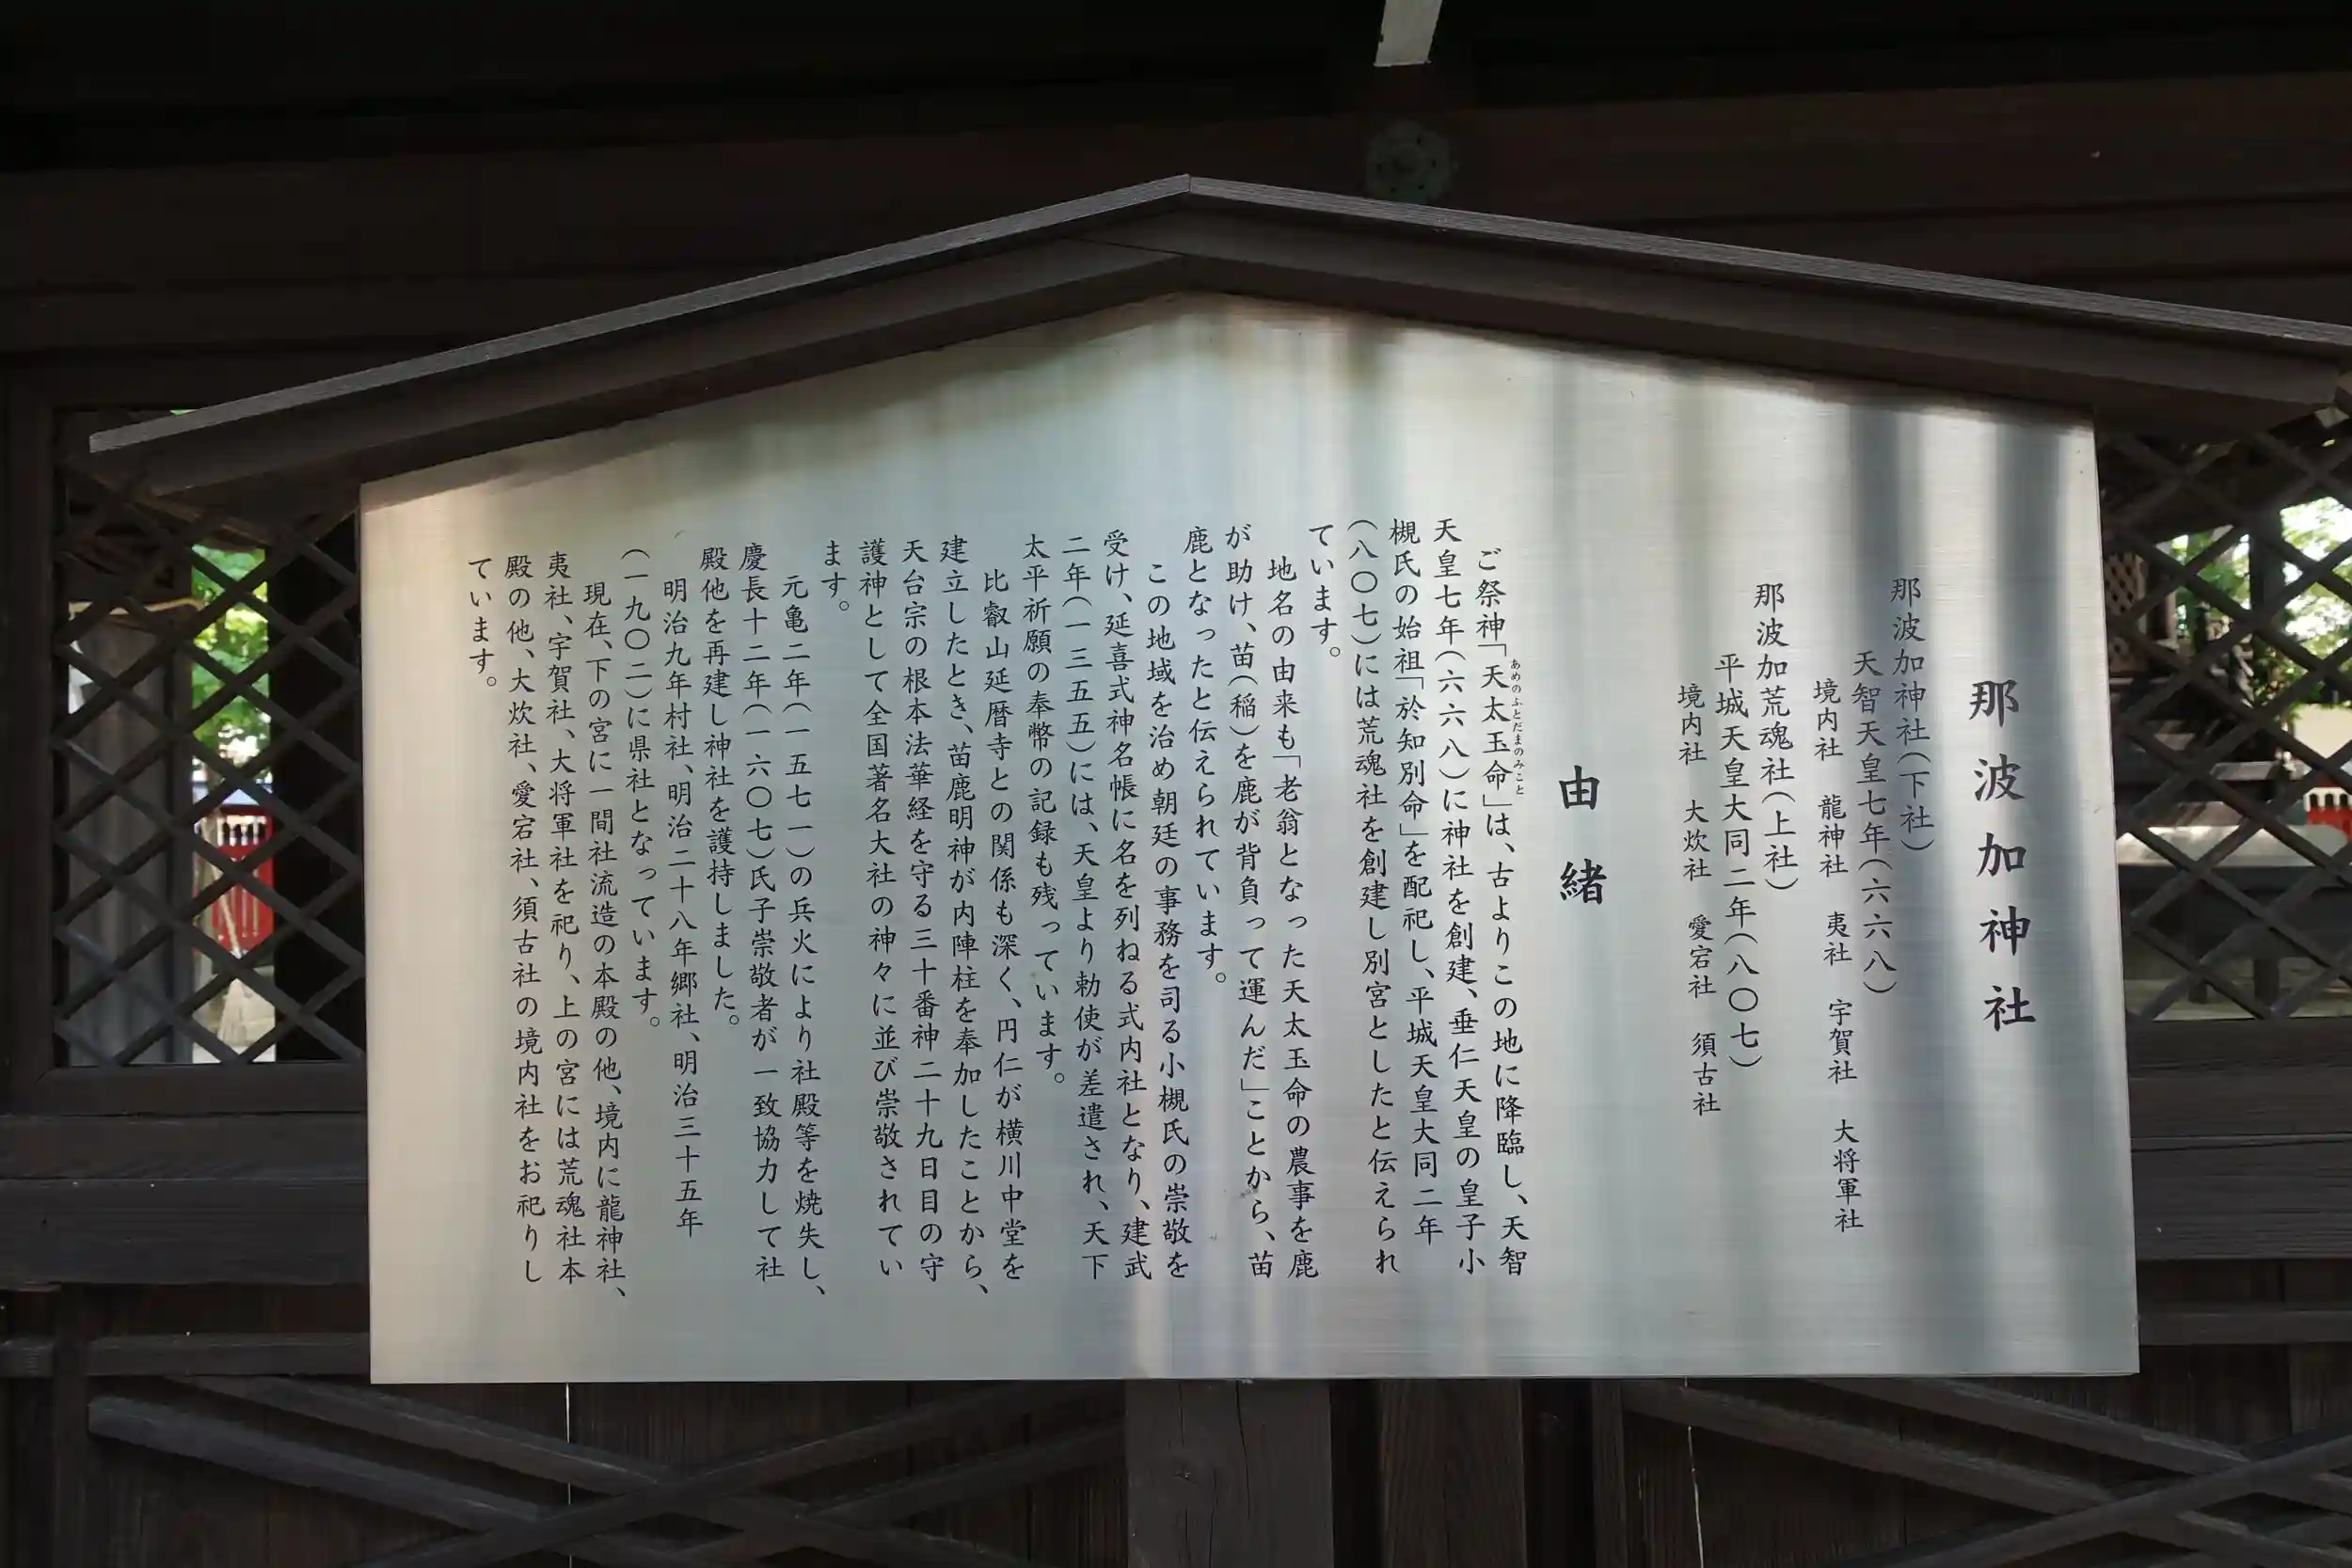 那波加神社
那波加神社（下社）
天智天皇七年（六六八）
境内社　龍神社　夷社　宇賀社　大将軍社
那波加荒魂社（上社）
平城天皇大同二年（八〇七）
境内社　大炊社　愛宕社　須古社
由緒
ご祭神「天太玉命」は、古よりこの地に降臨し、天智
あめのふとだまのみこと
天皇七年（六六八）に神社を創建、垂仁天皇の皇子小
槻氏の始祖「於知別命」を配祀し、平城天皇大同二年
（八〇七）には荒魂社を創建し別宮としたと伝えられ
ています。
地名の由来も「老翁となった天太玉命の農事を鹿
が助け、苗（稲）を鹿が背負って運んだ」ことから、苗
鹿となったと伝えられています。
この地域を治め朝廷の事務を司る小槻氏の崇敬を
受け、延喜式神名帳に名を列ねる式内社となり、建武
二年（一三五五）には、天皇より勅使が差遣され、天下
太平祈願の奉幣の記録も残っています。
比叡山延暦寺との関係も深く、円仁が横川中堂を
建立したとき、苗鹿明神が内陣柱を奉加したことから、
天台宗の根本法華経を守る三十番神二十九日目の守
護神として全国著名大社の神々に並び崇敬されてい
ます。
元亀二年（一五七一）の兵火により社殿等を焼失し、
慶長十二年（一六〇七）氏子崇敬者が一致協力して社
殿他を再建し神社を護持しました。
明治九年村社、明治二十八年郷社、明治三十五年
（一九〇二）に県社となっています。
現在、下の宮に一間社流造の本殿の他、境内に龍神社、
夷社、宇賀社、大将軍社を祀り、上の宮には荒魂社本
殿の他、大炊社、愛宕社、須古社の境内社をお祀りし
ています。